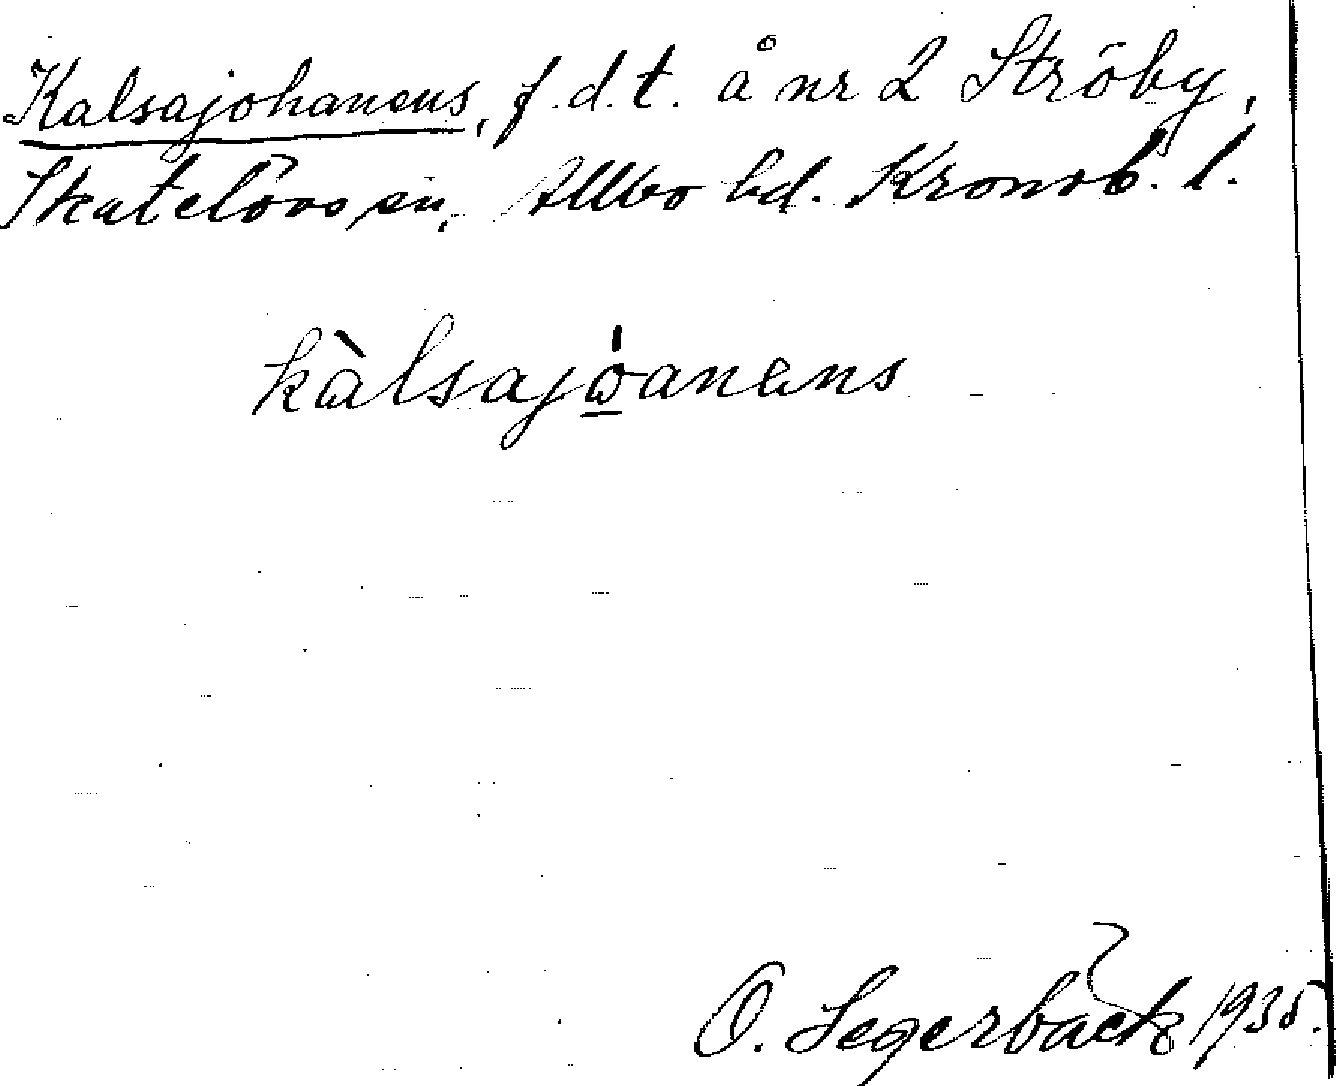 Kalsajohanens, f.d.t. å nr 2 Ströby,
Skatelövs sn, Allbo hd. Kronob. l.
kàlsajo̱̍anens
O. Segerbäck 1935.